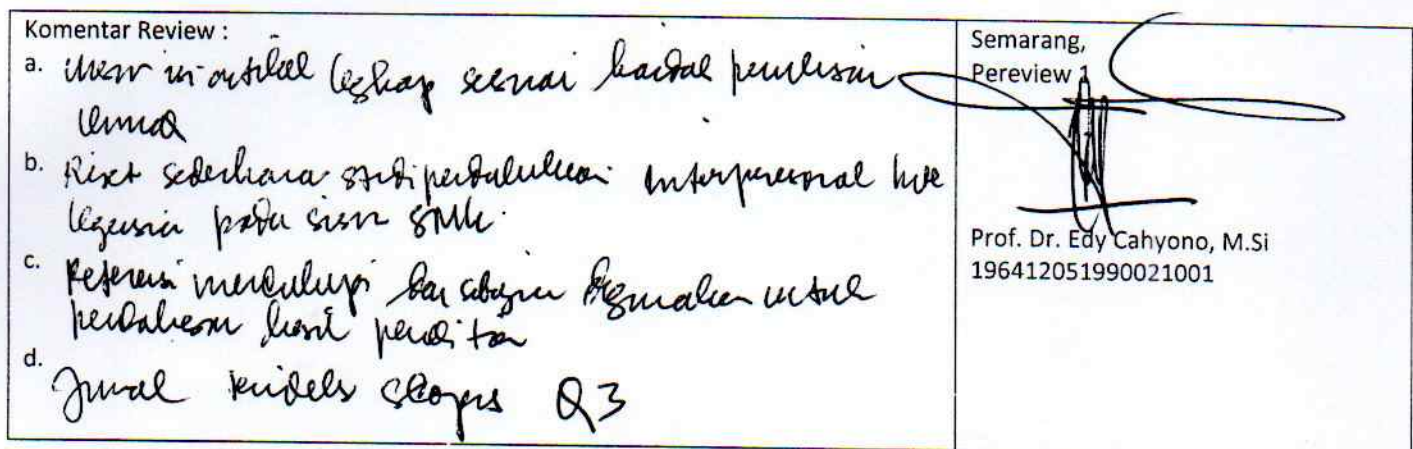 Komentar Review :
a. artikel lengkap sesuai kaidah penulisan
b. Riset sederhana studi pendahuluan interpersonal
pada siswa SMK.
c. Referensi dan sebagian digunakan untuk
hasil
d. Jurnal terindeks Scopus Q3
Semarang,
Pereview 1
Prof. Dr. Edy Cahyono, M.Si
196412051990021001